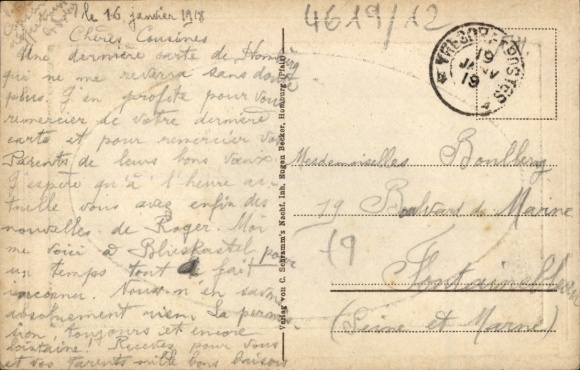 le 16 janvier 1918
Chères Cousines
Une dernière carte de Hom
qui ne me reverra sans dou
plus. J'en profite pour vous
remercier de votre dernière
carte et pour remercier vos
Parents de leurs bons vœux.
J'espère qu'à l'heure ac-
tuelle vous avez enfin des
nouvelles de Roger. Moi
me voici à Blieskastel pour
un temps tout à fait
inconnu. Nous n'en savons
absolument rien. La permis
sion, toujours et encore
lointaine! Recevez pour vous
et vos Parents mille bons baisers
4619/12
TRESOR ET POSTES
19
JANV
19
Verlag von C. Schramm's Nachf. Inh. Eugen Becker, Homburg (Pfalz)
Mesdemoiselles Boulberg
19 Boulevard de Marine
19
Fontainebleau
(Seine et Marne)